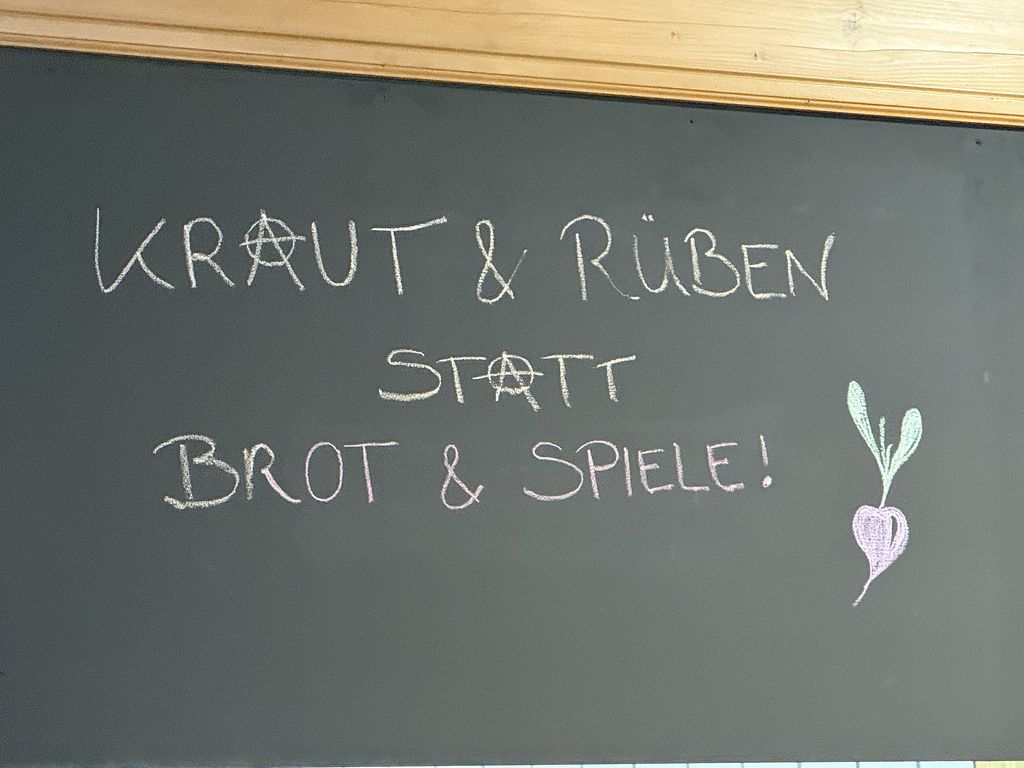 KRAUT & RÜBEN
STATT
BROT & SPIELE!